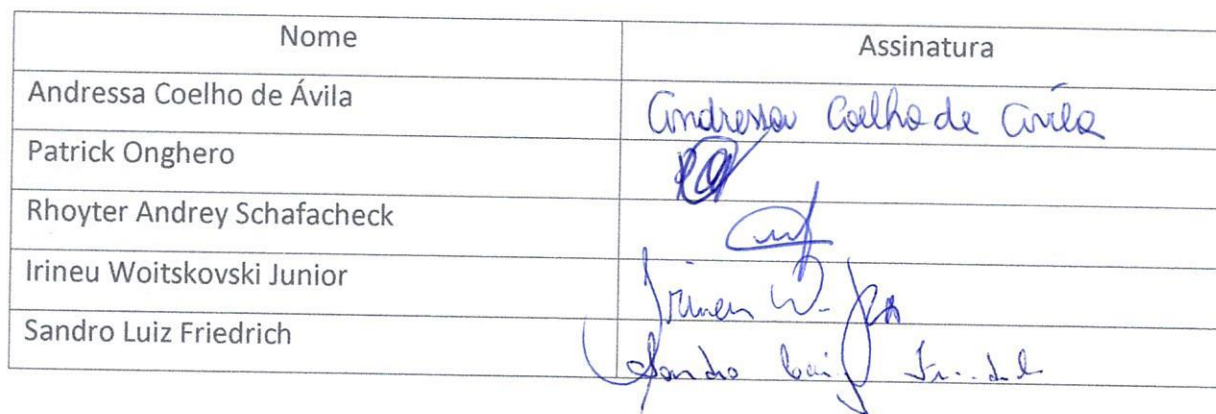 Nome Assinatura
Andressa Coelho de Ávila Andressa Coelho de Avila
Patrick Onghero
Rhoyter Andrey Schafacheck
Irineu Woitskovski Junior Irineu W. Jr
Sandro Luiz Friedrich Sandro Luiz